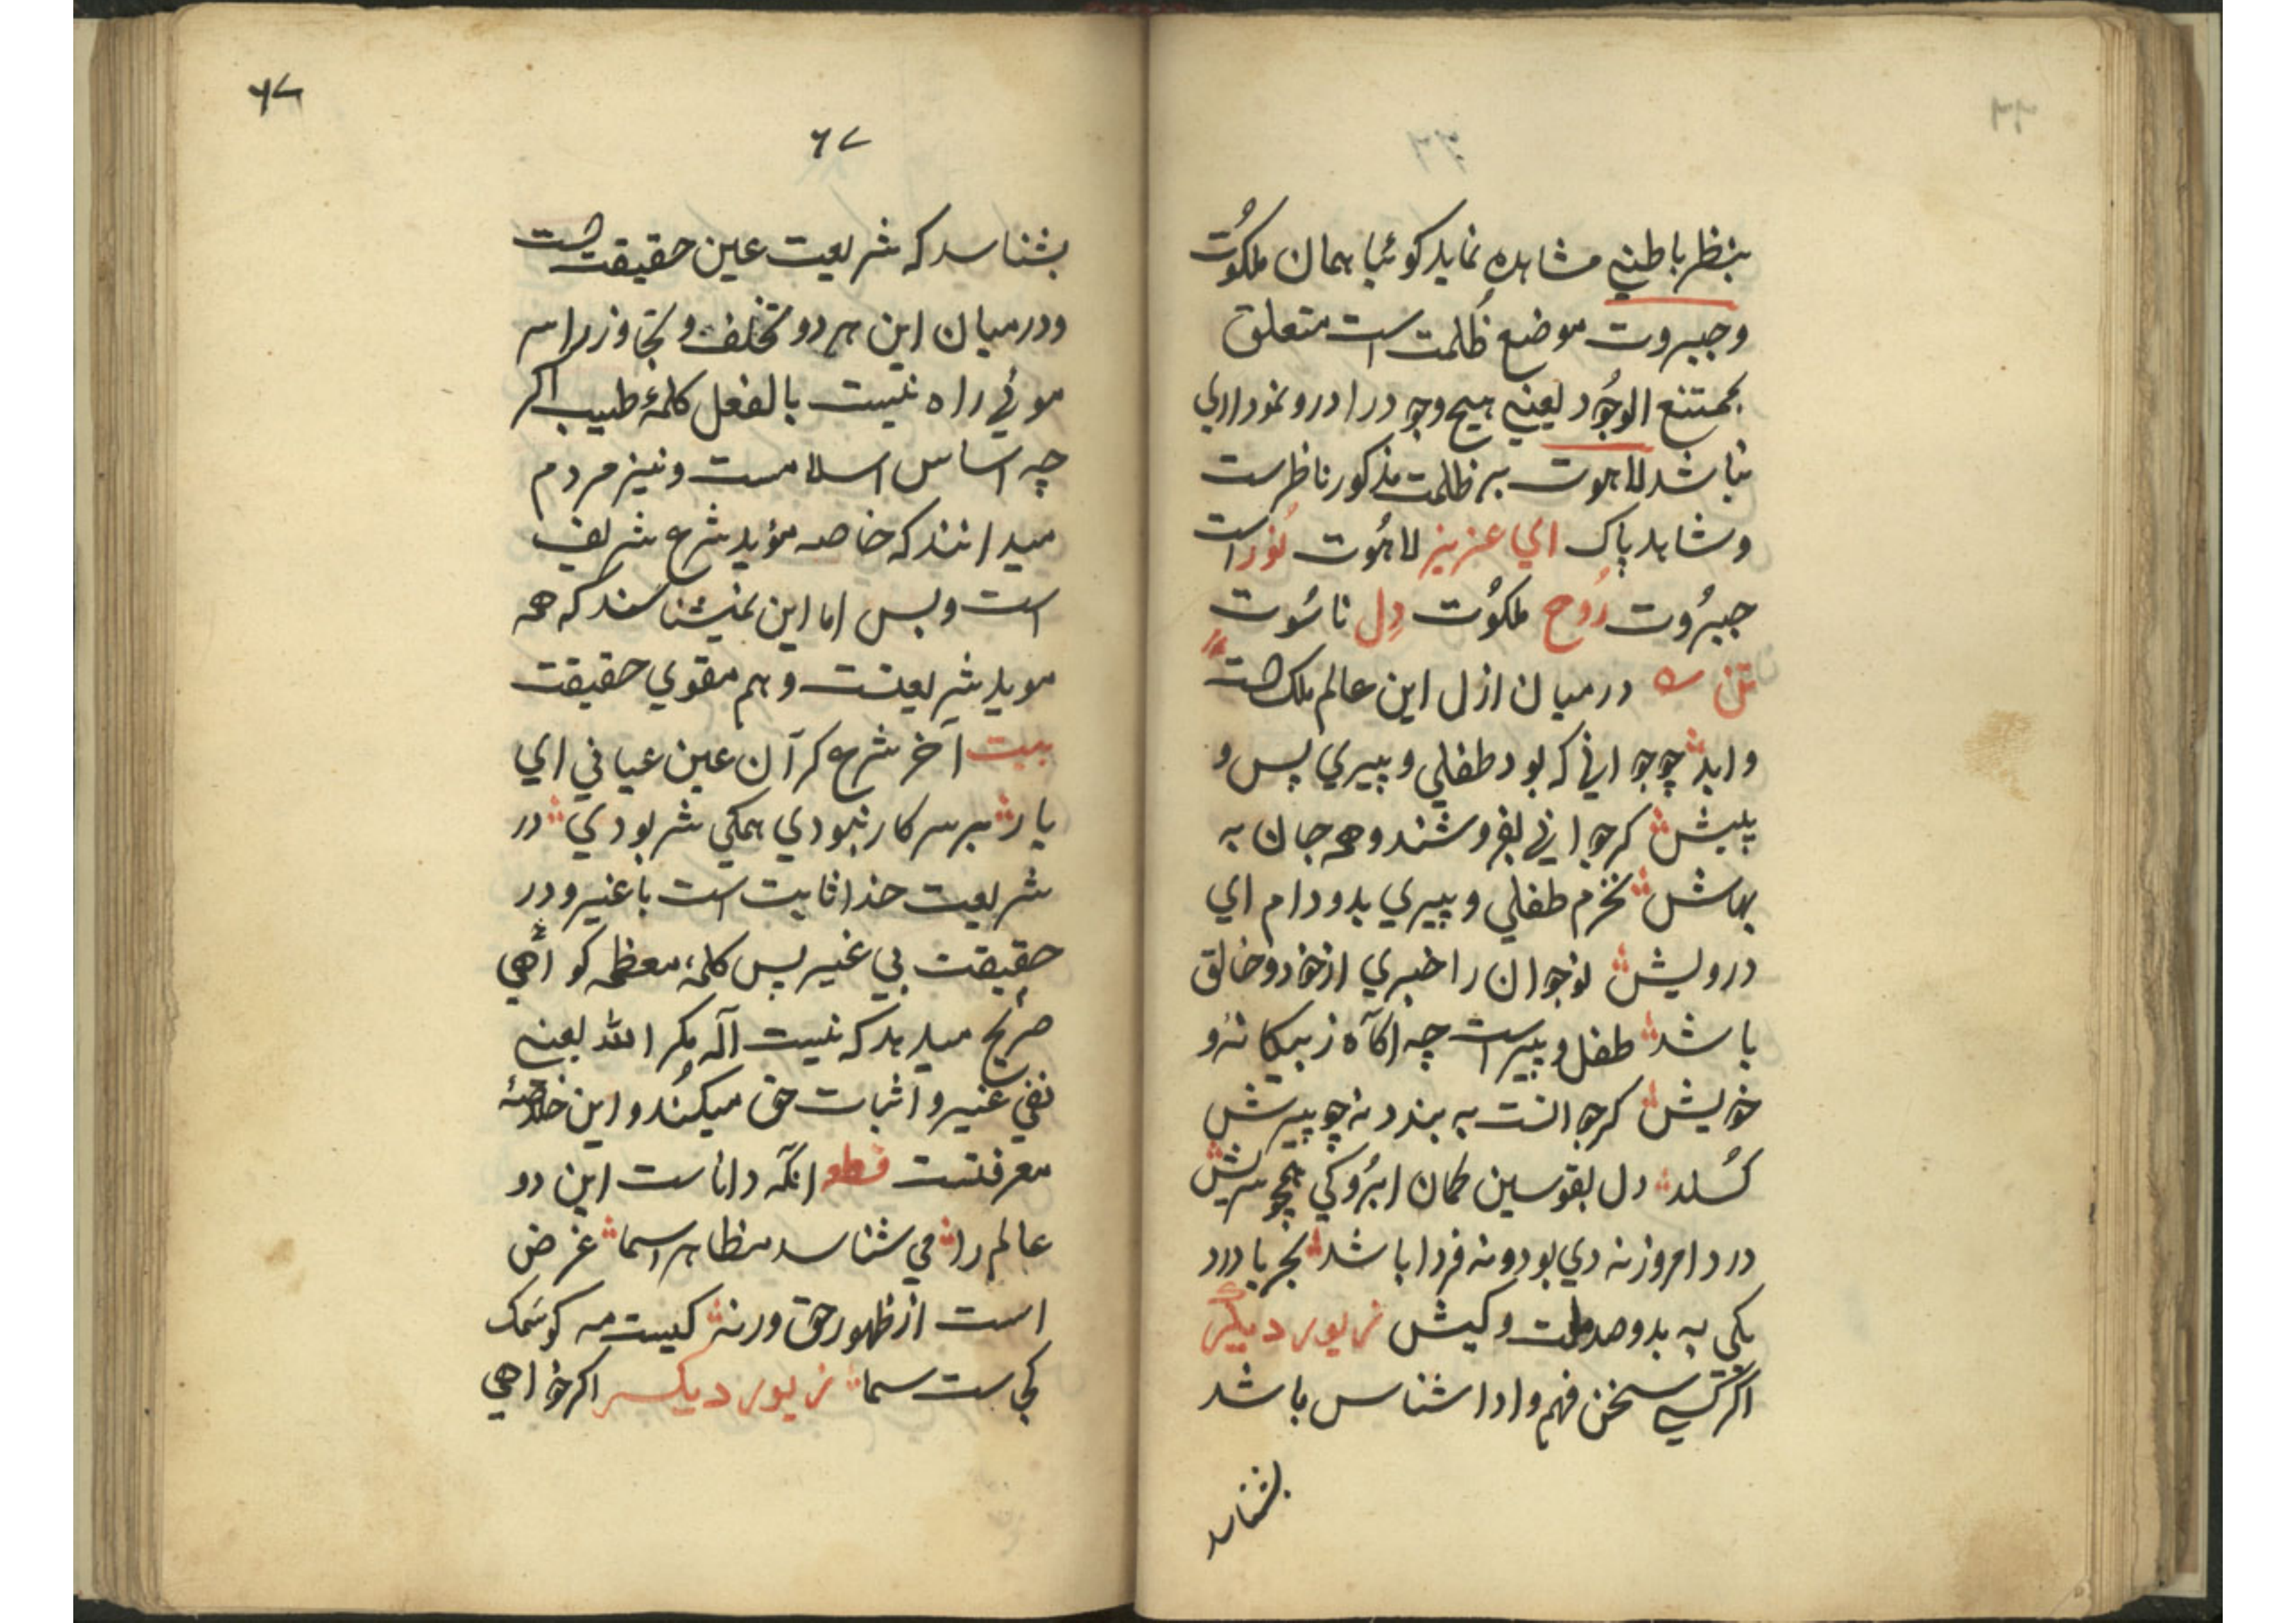 بنظر باطنی مشاهده نماید کوئیا همان ملکُوت
و جبروت موضع ظُلمت است متعلق
بممتنع الوجُود یعنی هیچ وجود را درو نمودار
نباشد لاهوت بر ظلمت مذکور ناظرست
و شاهد پاک ای عزیز لاهُوت نُور است
جبرُوت رُوح ملکُوت دِل ناسُوت
تن درمیان ازل این عالم ملک است
و ابد چو جوانی که بود طفلی و پیری پس و
پیش کر جوانی بفروشند و همه جان به
بهاش نخرم طفلی و پیری بدو دام ای
درویش نوجوان را خبری از خود و خالق
باشد طفل و پیر است چه اکآه ز بیکانه و
خویش کر جوانست به بندد نه چو پیرش
کسلد دل بقوسین کمان ابرُوکی همچو سریش
درد امروز نه دی بود و نه فردا باشد بجز با درد
یکی به بدو صد ملت و کیش زیور دیگر
اکر کسی سخن فهم و ادا شناس باشد
بشناسد
٦٧
٦٧
بشناسد که شریعت عین حقیقت است
و درمیان این هر دو تخلف و تجاوز را سر
موئی راه نیست بالفعل کلمهٔ طیب اکر
چه اساس اسلامست و نیز مردم
میدانند که خاصه مؤید شرع شریف
است و بس اما این نمیشناسند که همه
موید شریعتست و هم مقوی حقیقت
بیت آخر شرع کر آن عین عیانی ای
یار بر سر کار نبودی همکی شر بودی در
شریعت خدا ثابت است با غیر و در
حقیقت بی غیر پس کلمهٔ معظمه کواهی
صریح میدهد که نیست آله مکر الله یعنی
نفی غیر و اثبات حق میکُند و این خلاصهٔ
معرفتست قطعه انکه داناست این دو
عالم را می شناسد مظاهر اسما غرض
است از ظهور حق ورنه کیست مه کو سَمک
کجاست سما زیور دیکر اکر خواهی